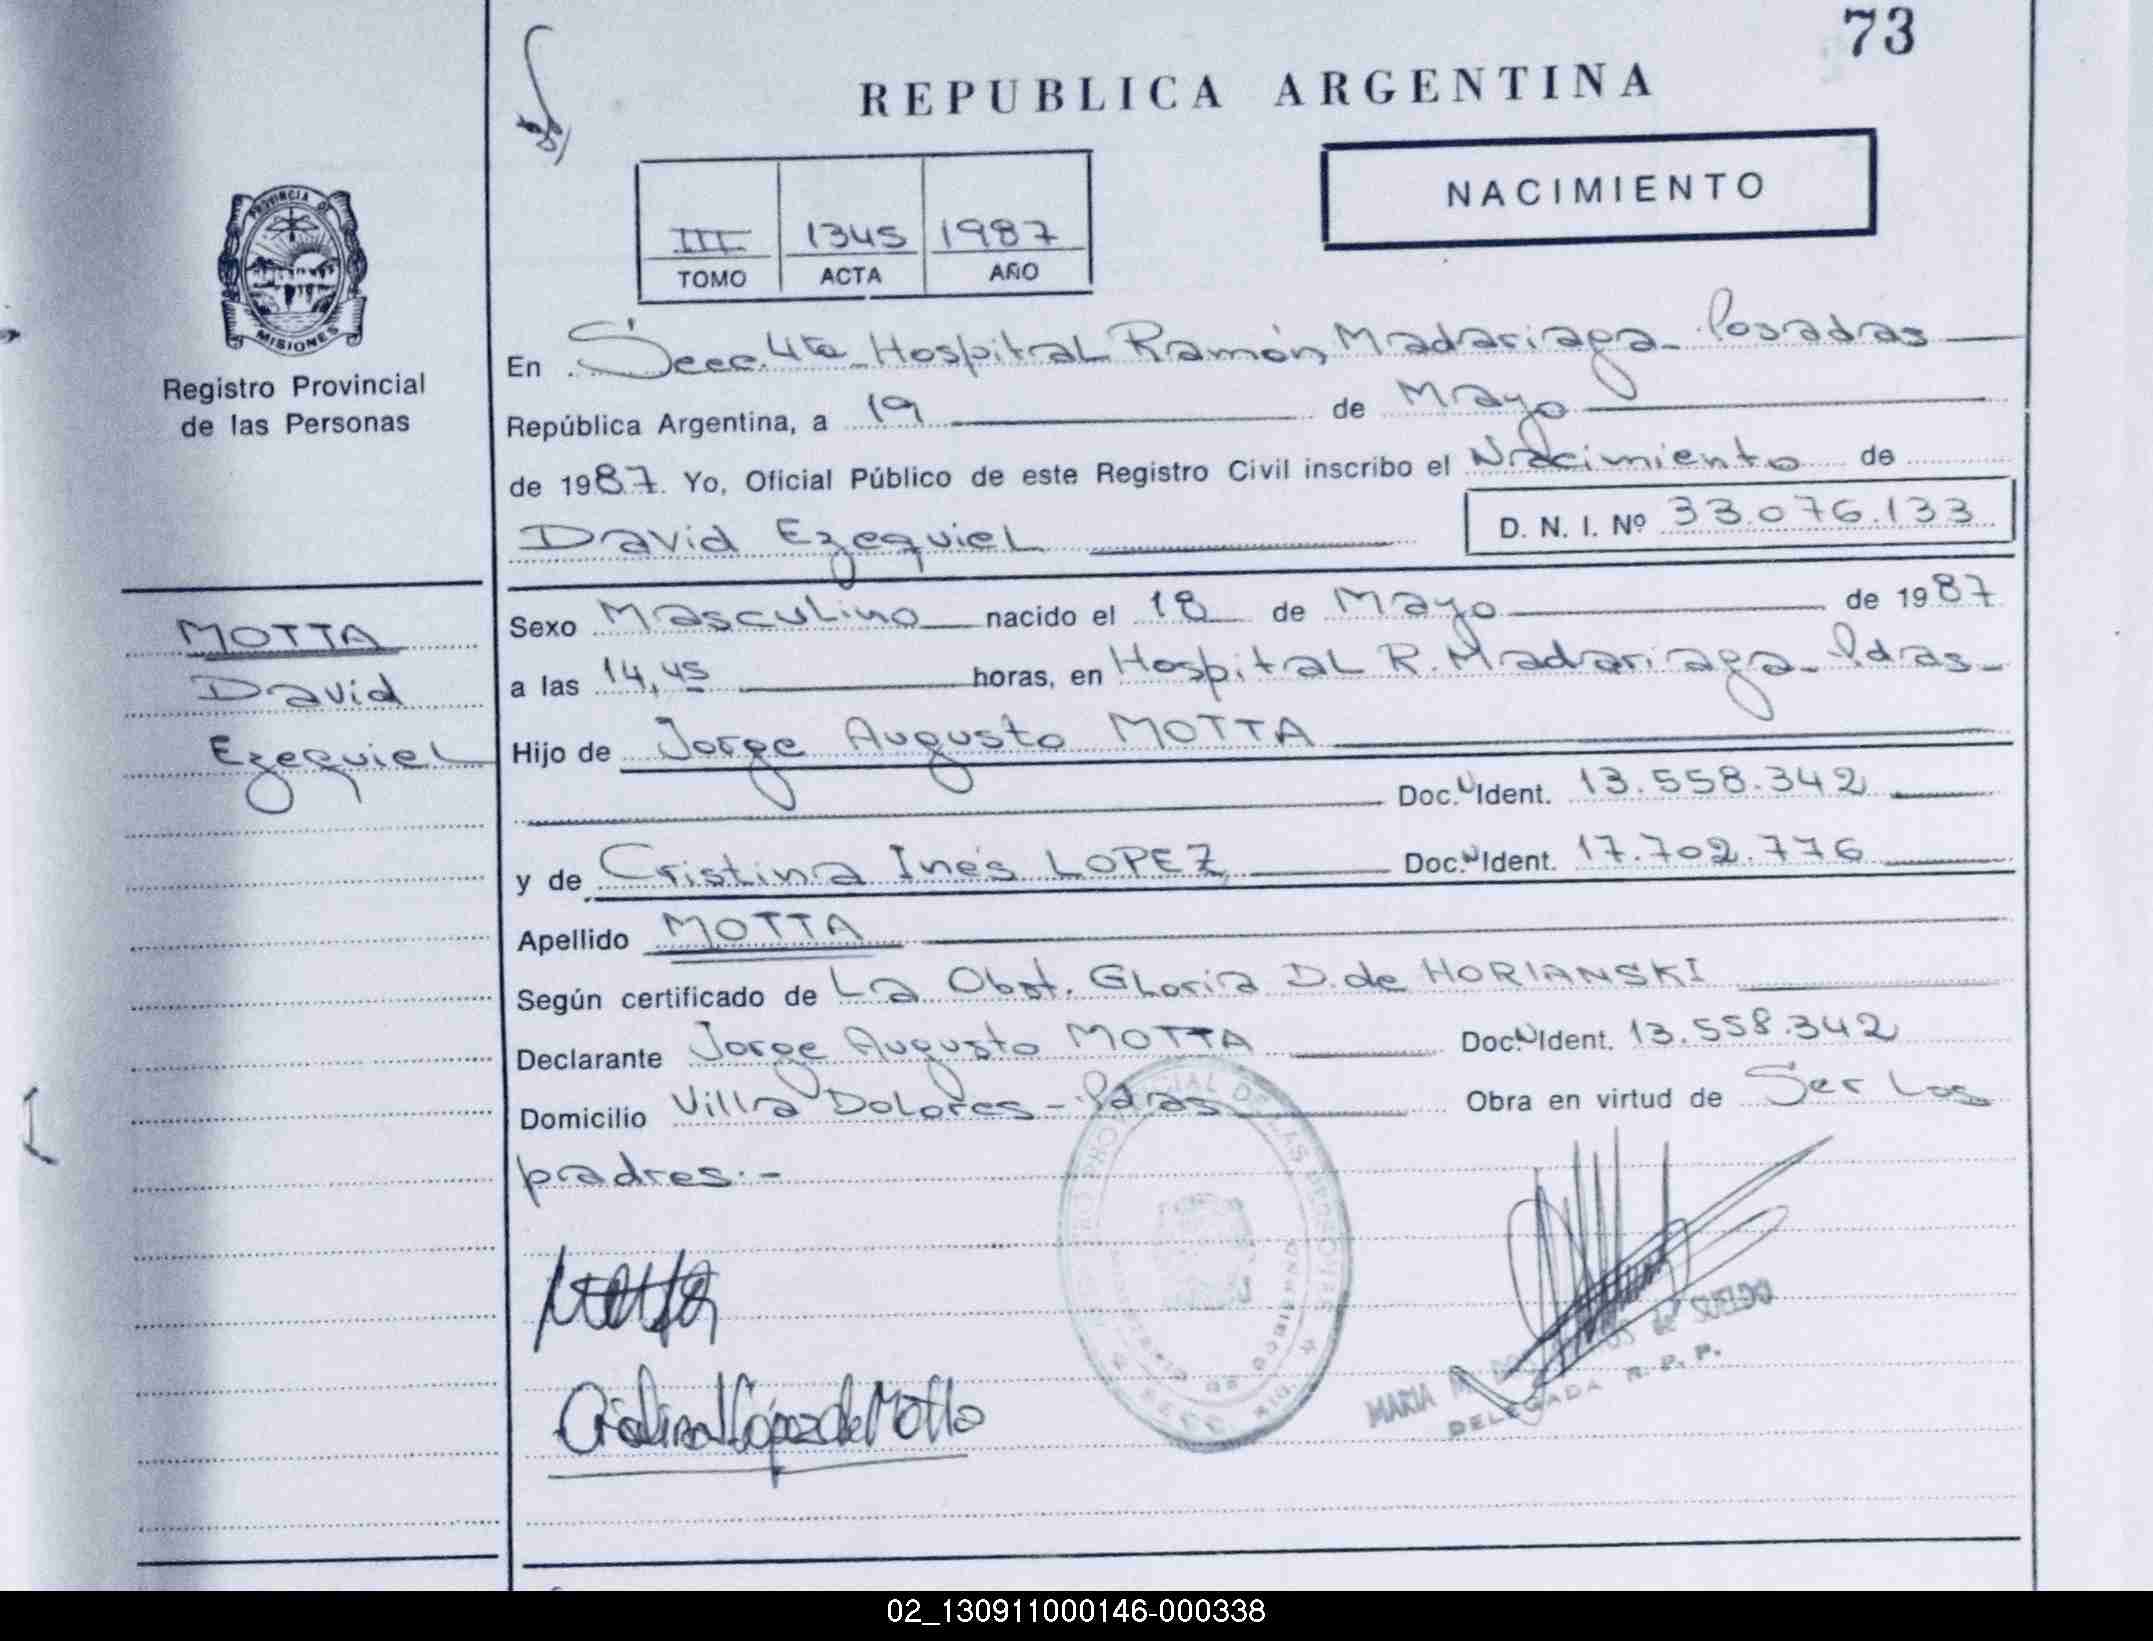 73
REPUBLICA ARGENTINA
NACIMIENTO
III 1345 1987
TOMO ACTA AÑO
PROVINCIA DE
MISIONES
Registro Provincial
de las Personas
En Secc. 4ta Hospital Ramón Madariaga - Posadas
República Argentina, a 19 de Mayo
de 1987. Yo, Oficial Público de este Registro Civil inscribo el Nacimiento de
David Ezequiel D. N. I. Nº 33.076.133
MOTTA
David
Ezequiel
Sexo Masculino nacido el 18 de Mayo de 1987
a las 14,45 horas, en Hospital R. Madariaga - Pdas -
Hijo de Jorge Augusto MOTTA
Doc. N Ident. 13.558.342
y de Cristina Inés LOPEZ Doc. N Ident. 17.702.776
Apellido MOTTA
Según certificado de La Obst. Gloria D. de HORIANSKI
Declarante Jorge Augusto MOTTA Doc. N Ident. 13.558.342
Domicilio Villa Dolores - Pdas Obra en virtud de Ser Los
padres.-
Motta
Cristina López de Motta
PROVINCIAL DE LAS PERSONAS
MARIA de SUELDO
DELEGADA R. P. P.
02_130911000146-000338